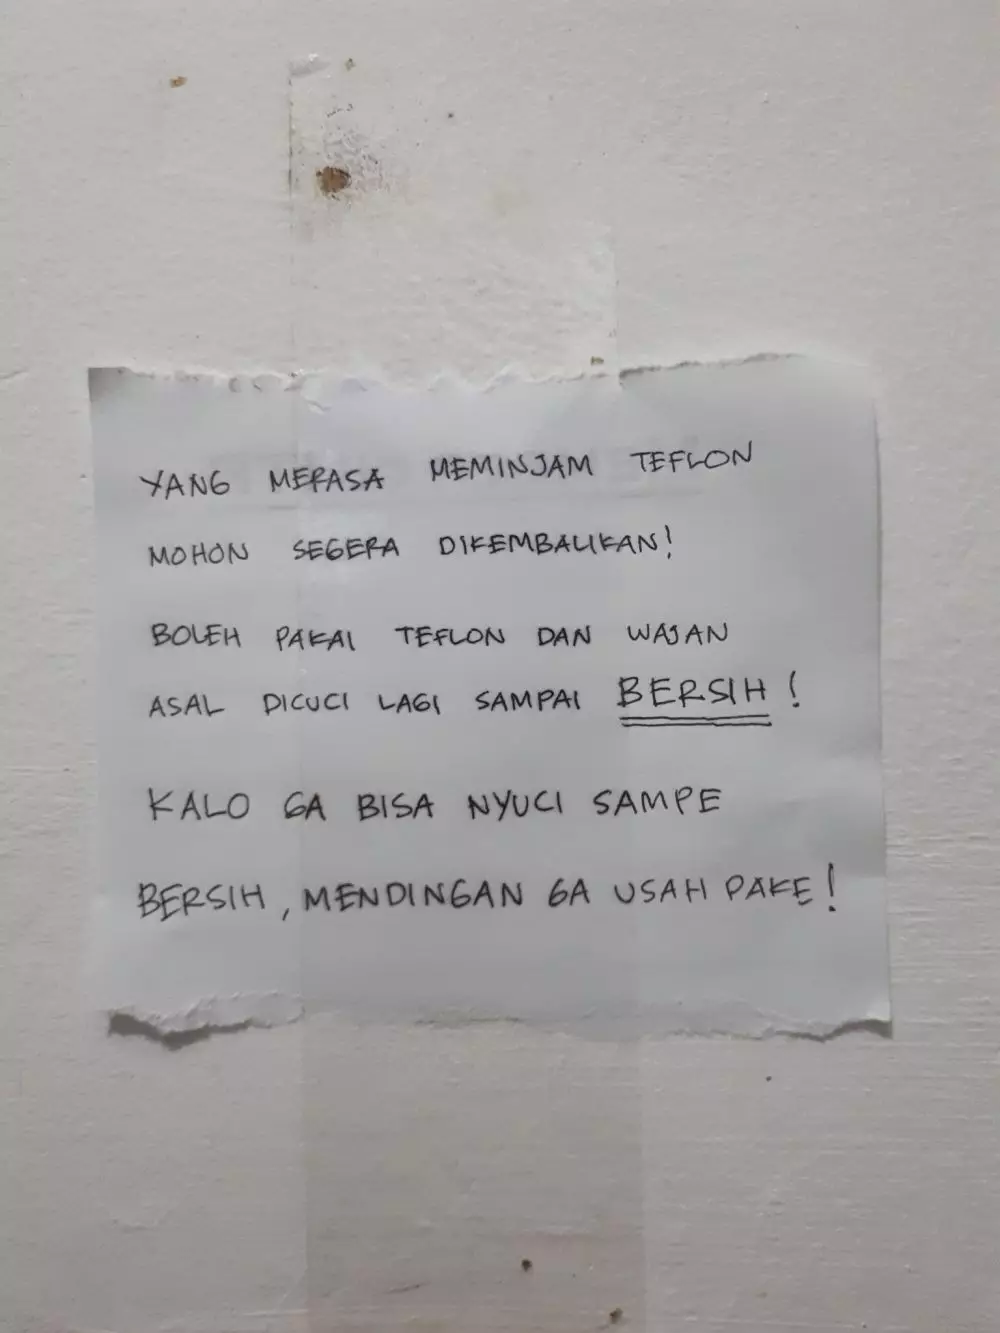 YANG MERASA MEMINJAM TEFLON
MOHON SEGERA DIKEMBALIKAN!
BOLEH PAKAI TEFLON DAN WAJAN
ASAL DICUCI LAGI SAMPAI BERSIH!
KALO GA BISA NYUCI SAMPE
BERSIH, MENDINGAN GA USAH PAKE!